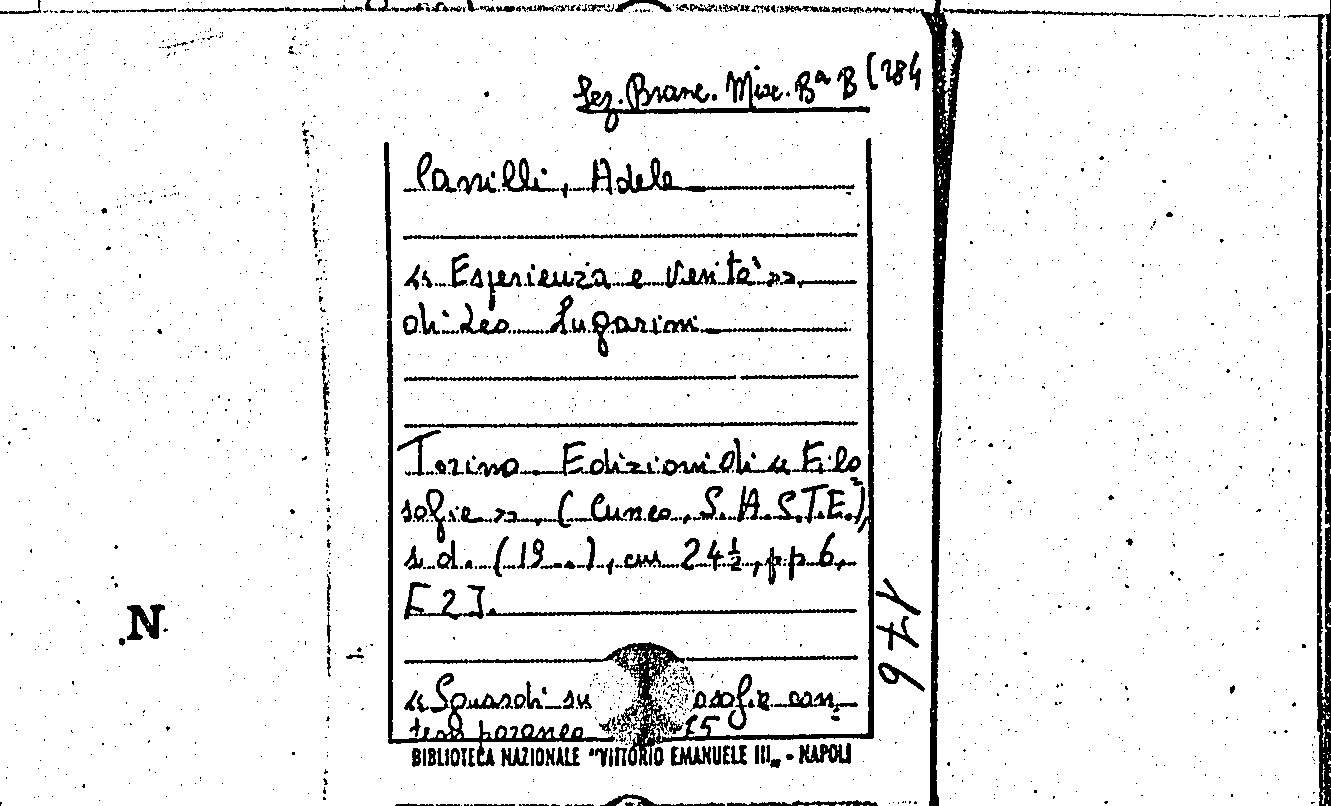 Sez. Branc. Misc. Bª B (284
Adele
« Esperienza e verità »,
di Leo Lugarini
Torino. Edizioni di « Filo
sofia », (Cuneo, S.A.S.T.E.),
s.d. (19..), cm 24½, pp 6,
[2].
« Sguardi su osofia con
temporanea 15
BIBLIOTECA NAZIONALE "VITTORIO EMANUELE III„ - NAPOLI
176
N